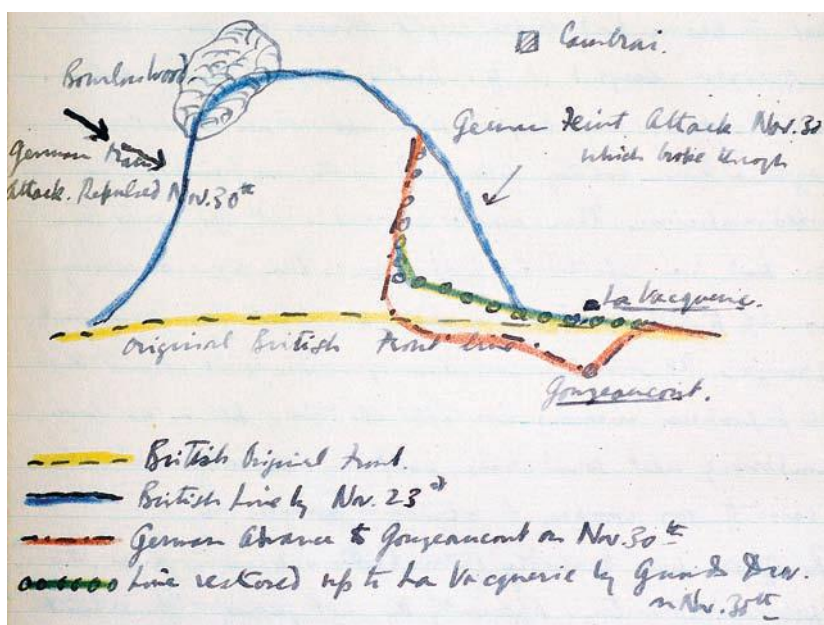 Cambrai.
Bourlon wood.
German Feint Attack Nov. 30
which broke through
German Main
Attack. Repulsed Nov. 30th
La Vacquerie.
Original British Front Line
Gouzeaucourt.
British Original Front.
British Line by Nov. 23rd
German Advance to Gouzeaucourt on Nov. 30th
Line restored up to La Vacquerie by Guards Div.
on Nov. 30th